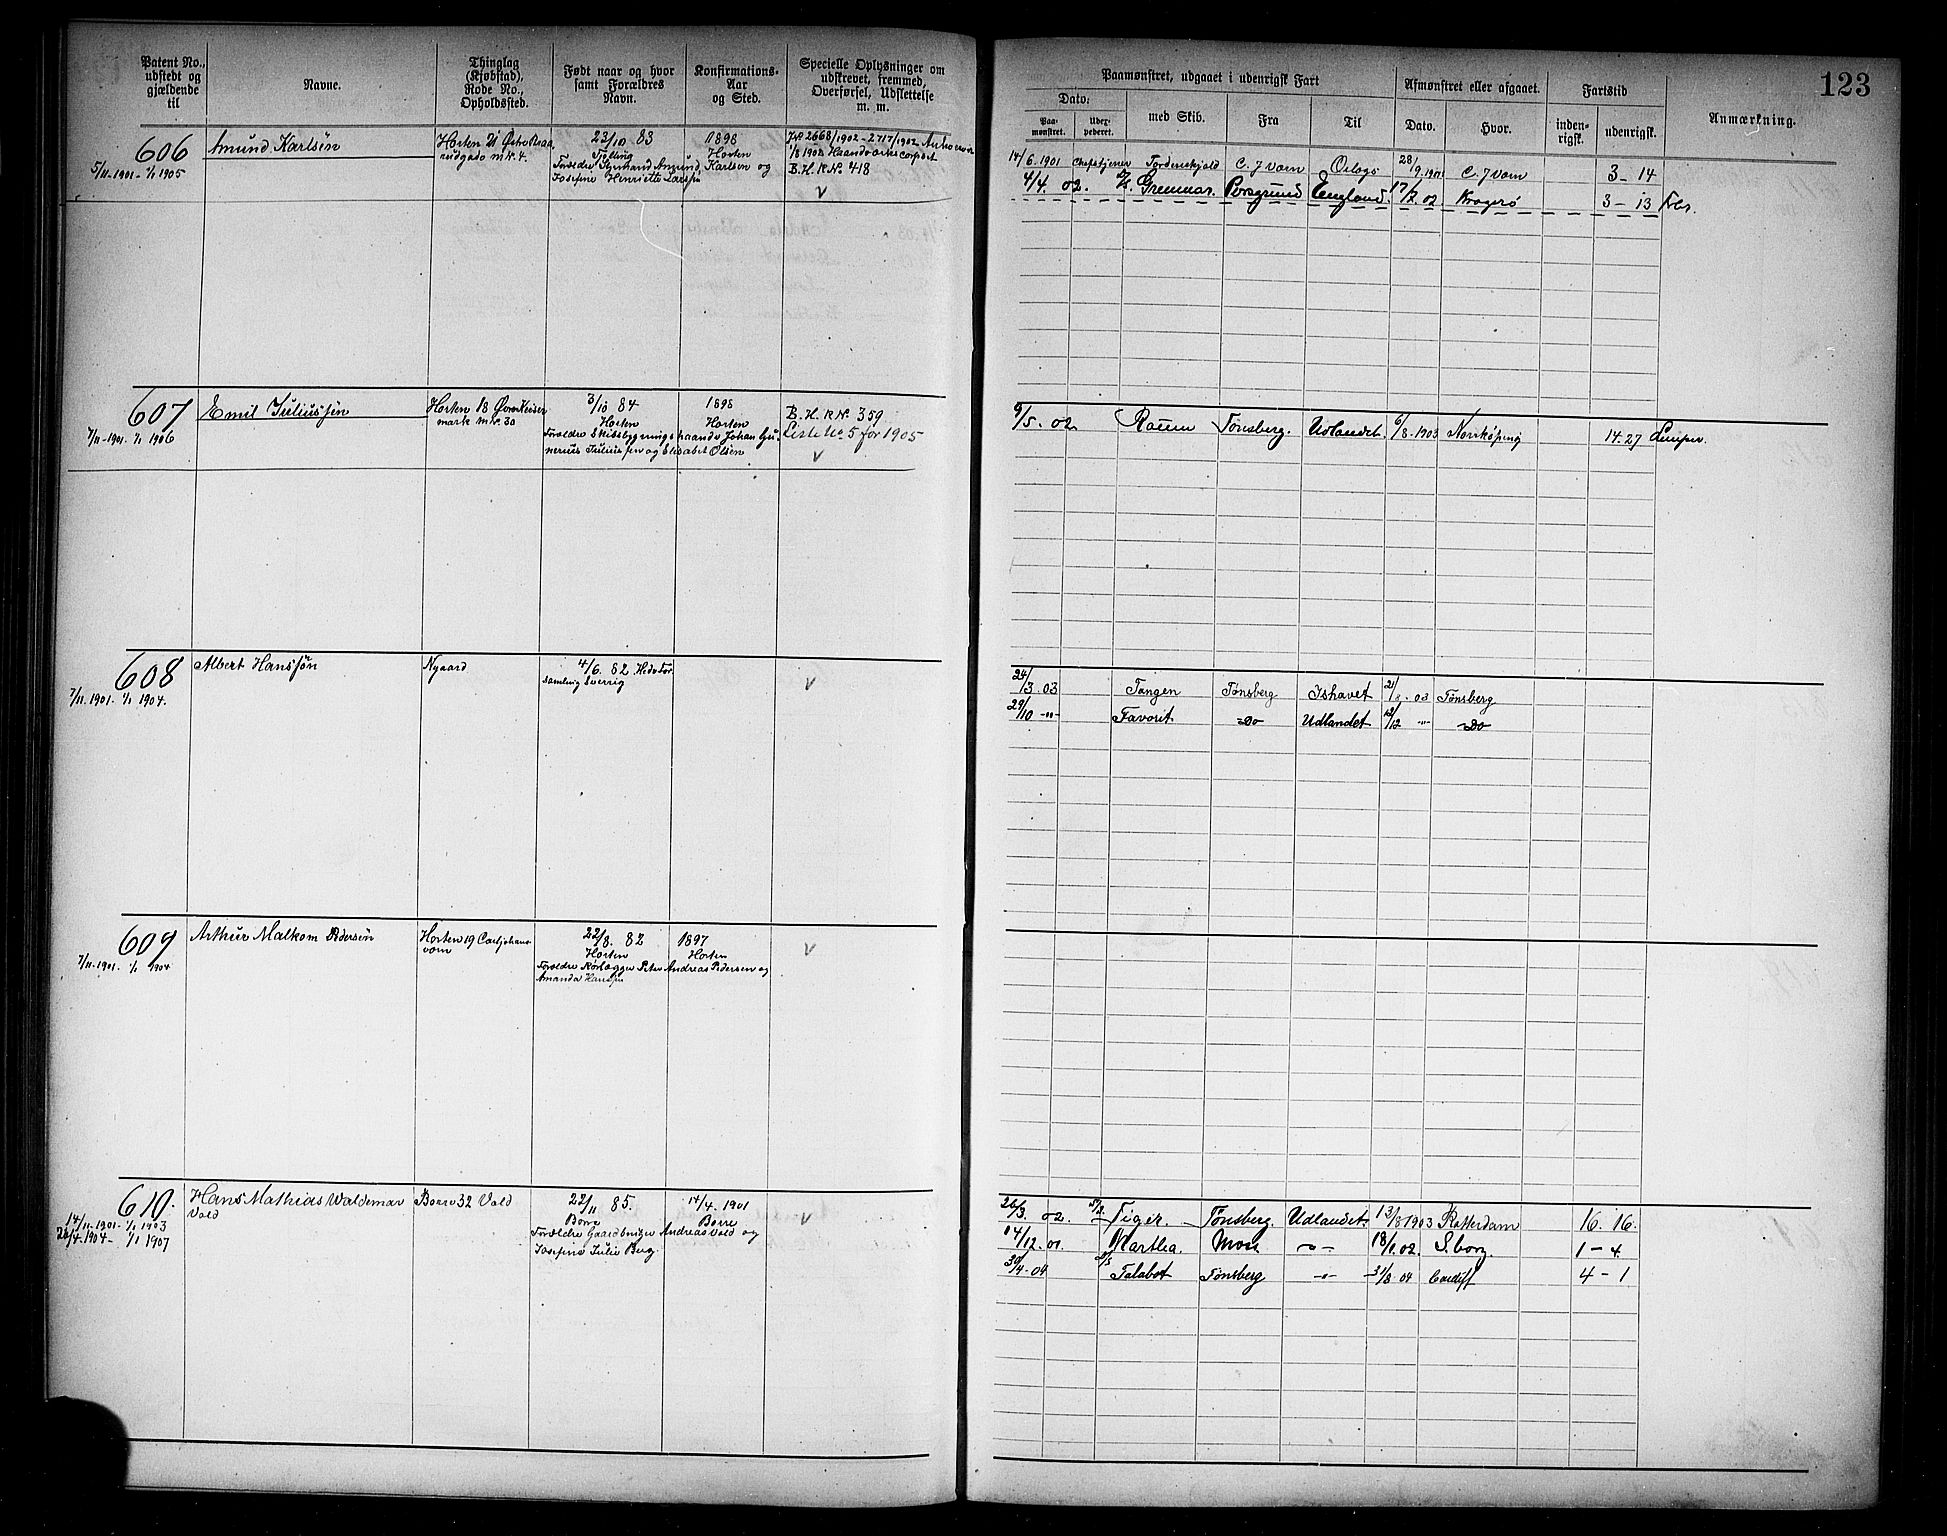 Patent No., udstedt og gjældende til
Navne.
Thinglag (Kjøbstad), Rode No., Opholdssted.
Født naar og hvor samt Forældres Navn.
Konfirmations-Aar og Sted.
Specielle Oplysninger om udskrevet, fremmed, Overførsel, Udslettelse m. m.
606
5/11-1901 - 1/1 1905
Amund Karlsön
Horten 21
mN. 4.
23/10 83
Tjølling
Forældre Amund Karlsen og
Josefine Henriette Larsen
1898
Horten
2668/1902 - 2717/1902
1/8 1902 Haandværkscorpset
B. H. R No. 418
607
7/11-1901. 1/1 1906
Emil Juliussøn
Horten 18 Øvre Keiser
mark mNr. 30
3/10 84
Horten
Forældre Skibsbygningshaandv Johan Gunerius Juliussen og Elisabet Olsen
1898
Horten
B. H. R No. 359
Liste No. 5 for 1905
608
7/11.1901. 1/1 1904.
Albert Hanssøn
Nygaard
4/6. 82 Hedv For
samling Sverrig
609
7/11-1901. 1/1 1904
Arthur Malkom Pedersen
Horten 19 Carljohans
værn
22/8. 82
Horten
Forældre Rørlægger Peter Andreas Pedersen og
Amanda Hanssen
1897
Horten
610.
14/11-1901- 1/1 1903
26/4.1904- 1/1 1907
Hans Mathias Waldemar
Vold
Borre 32 Vold
22/11 85.
Borre
Forældre Gaardbruger Andreas Vold og
Josefine Julie Berg.
14/4. 1901
Borre
123
Paamønstret, udgaaet i udenrigsk Fart
Afmønstret eller afgaaet.
Fartstid
Anmærkning.
Dato:
Paa-mønstret.
Uder-pederet.
med Skib.
Fra
Til
Dato.
Hvor.
inden-rigsk.
udenrigsk.
14/6.1901 Chefstjener Tordenskjold C. J Værn Orlogs 28/9.1901 C. J Værn 3 - 14
4/4. 02. Grenmar. Porsgrund England. 17/7. 02. Kragerø 3 - 13
9/5. 02 Tønsberg. Udlandet. 6/8-1903 Norrköping 14. 27
24/3. 03 Tangen Tønsberg Ishavet 21/8. 03 Tønsberg
29/10 -"- Favorit Do Udlandet 12/12 -"- Do
26/3. 02. Tiger. Tønsberg. Udlandet. 13/8 1903 Rotterdam 16. 16.
04/12.01 Martha. Moss -"- 18/1.02. S.borg. 1 - 4.
30/4.04 Talabot Tønsberg -"- 31/8 04 Cardiff 4 - 1